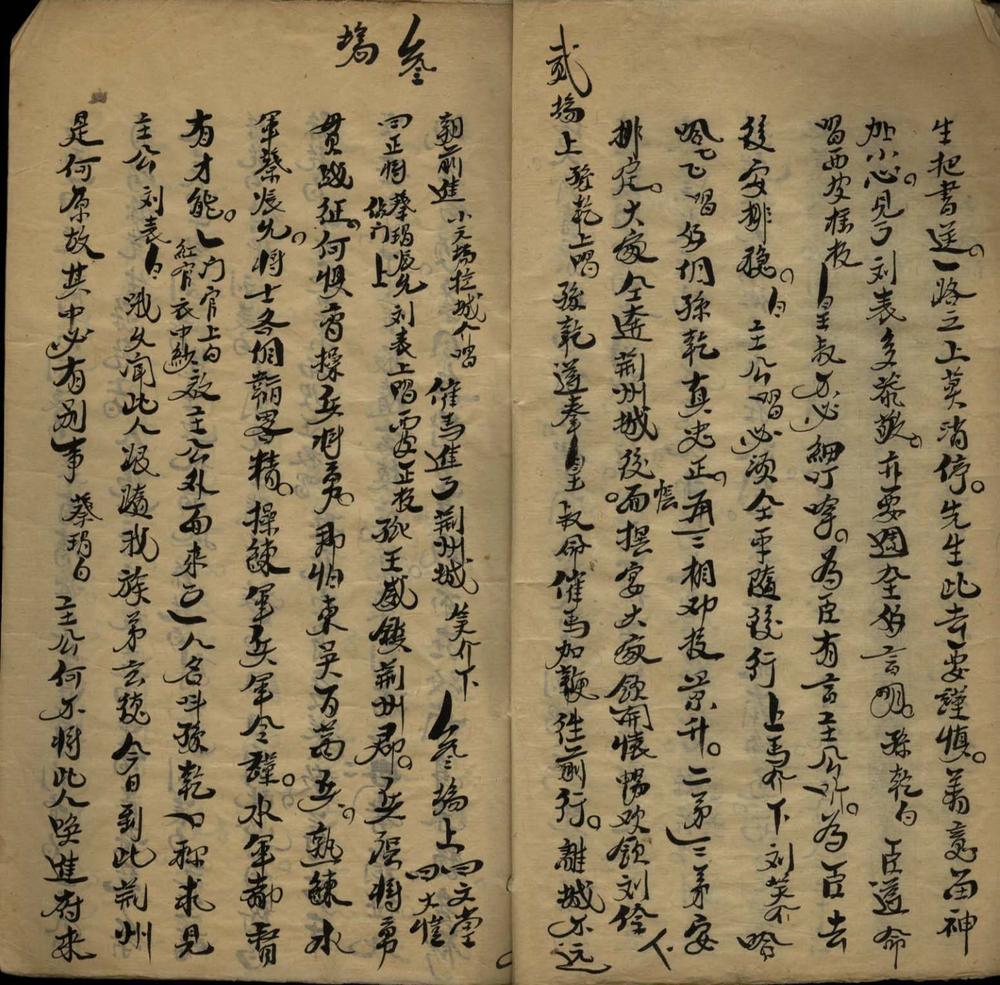 生把書送一路之上莫消停。先生此去要謹慎。著意留神
加小心。見了刘表多恭敬。亦要週全的言明。孫乾白 臣遵命
唱西皮㨾板 皇叔不必細叮嚀。為臣有言主公听。為臣去
後安排穩。白 主公唱必須全平隨後行 上馬介下 刘笑介 哈
唱 孫乾真忠正。再三相劝投景升。二弟三弟安
排定。大家仝奔荊州城。後面擺宴大家飲開懷暢飲 下
貳塲上 孫乾上唱 孫乾遵奉皇叔命催馬加鞭往前行。離城不远
叁塲
朝前進 小元塲拉城介唱 催馬進了荊州城 笑介下 叁塲上 四文堂 四大愷
四正將 蔡瑁張允 上 刘表上唱 西皮正板 孤王威鎮荊州郡。兵強將勇
貫戰征。何惧曹操兵將勇。那怕東吳百萬兵。熟鍊水
軍蔡張允。將士各個韜畧精。操鍊軍兵軍令謹。水軍都督
有才能。門官上白 紅官衣中紗 啟主公外面來了一人名叫孫乾口称求見
主公 刘表白 哦久闻此人跟隨我族弟玄德今日到此荊州
是何原故其中必有别事 蔡瑁白 主公何不將此人唤進府來